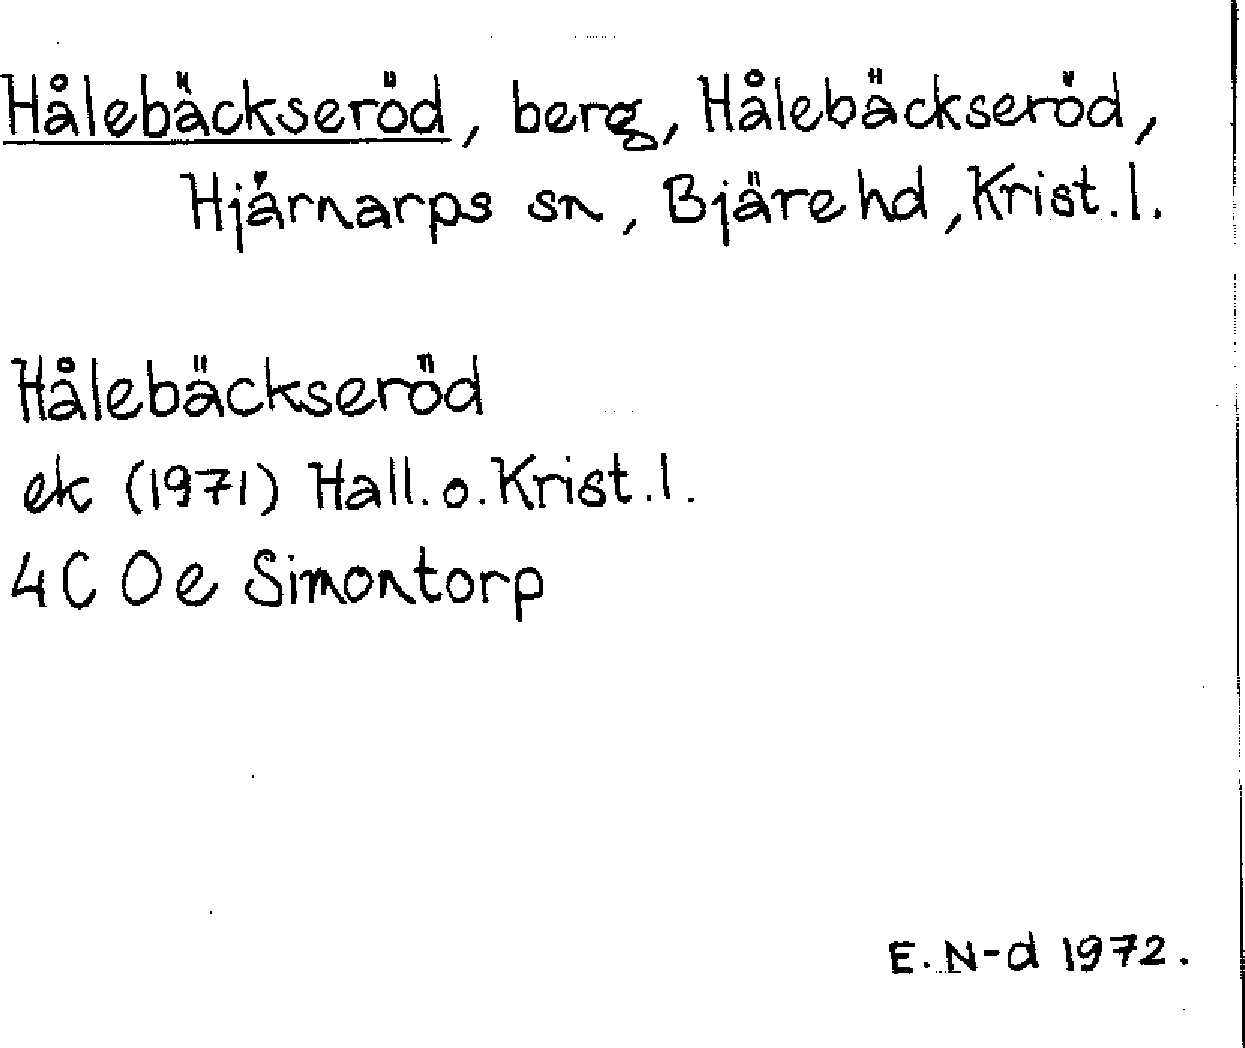 Hålebäckseröd, berg, Hålebäckseröd,
Hjärnarps sn, Bjäre hd, Krist. l.
Hålebäckseröd
ek (1971) Hall. o. Krist. l.
4 C O e Simontorp
E. N-d 1972.